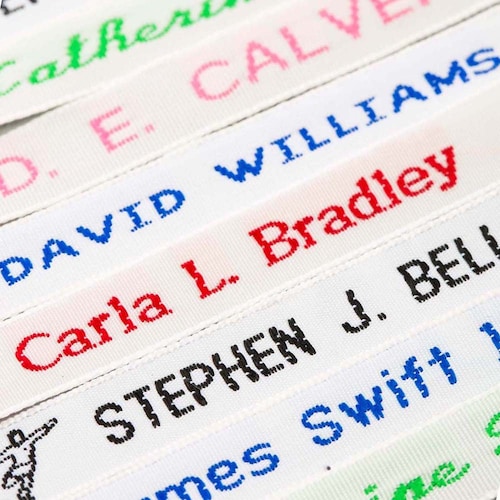 Catherin
D. E. CALVE
DAVID WILLIAMS
Carla L. Bradley
STEPHEN J. BELL
mes Swift
ine